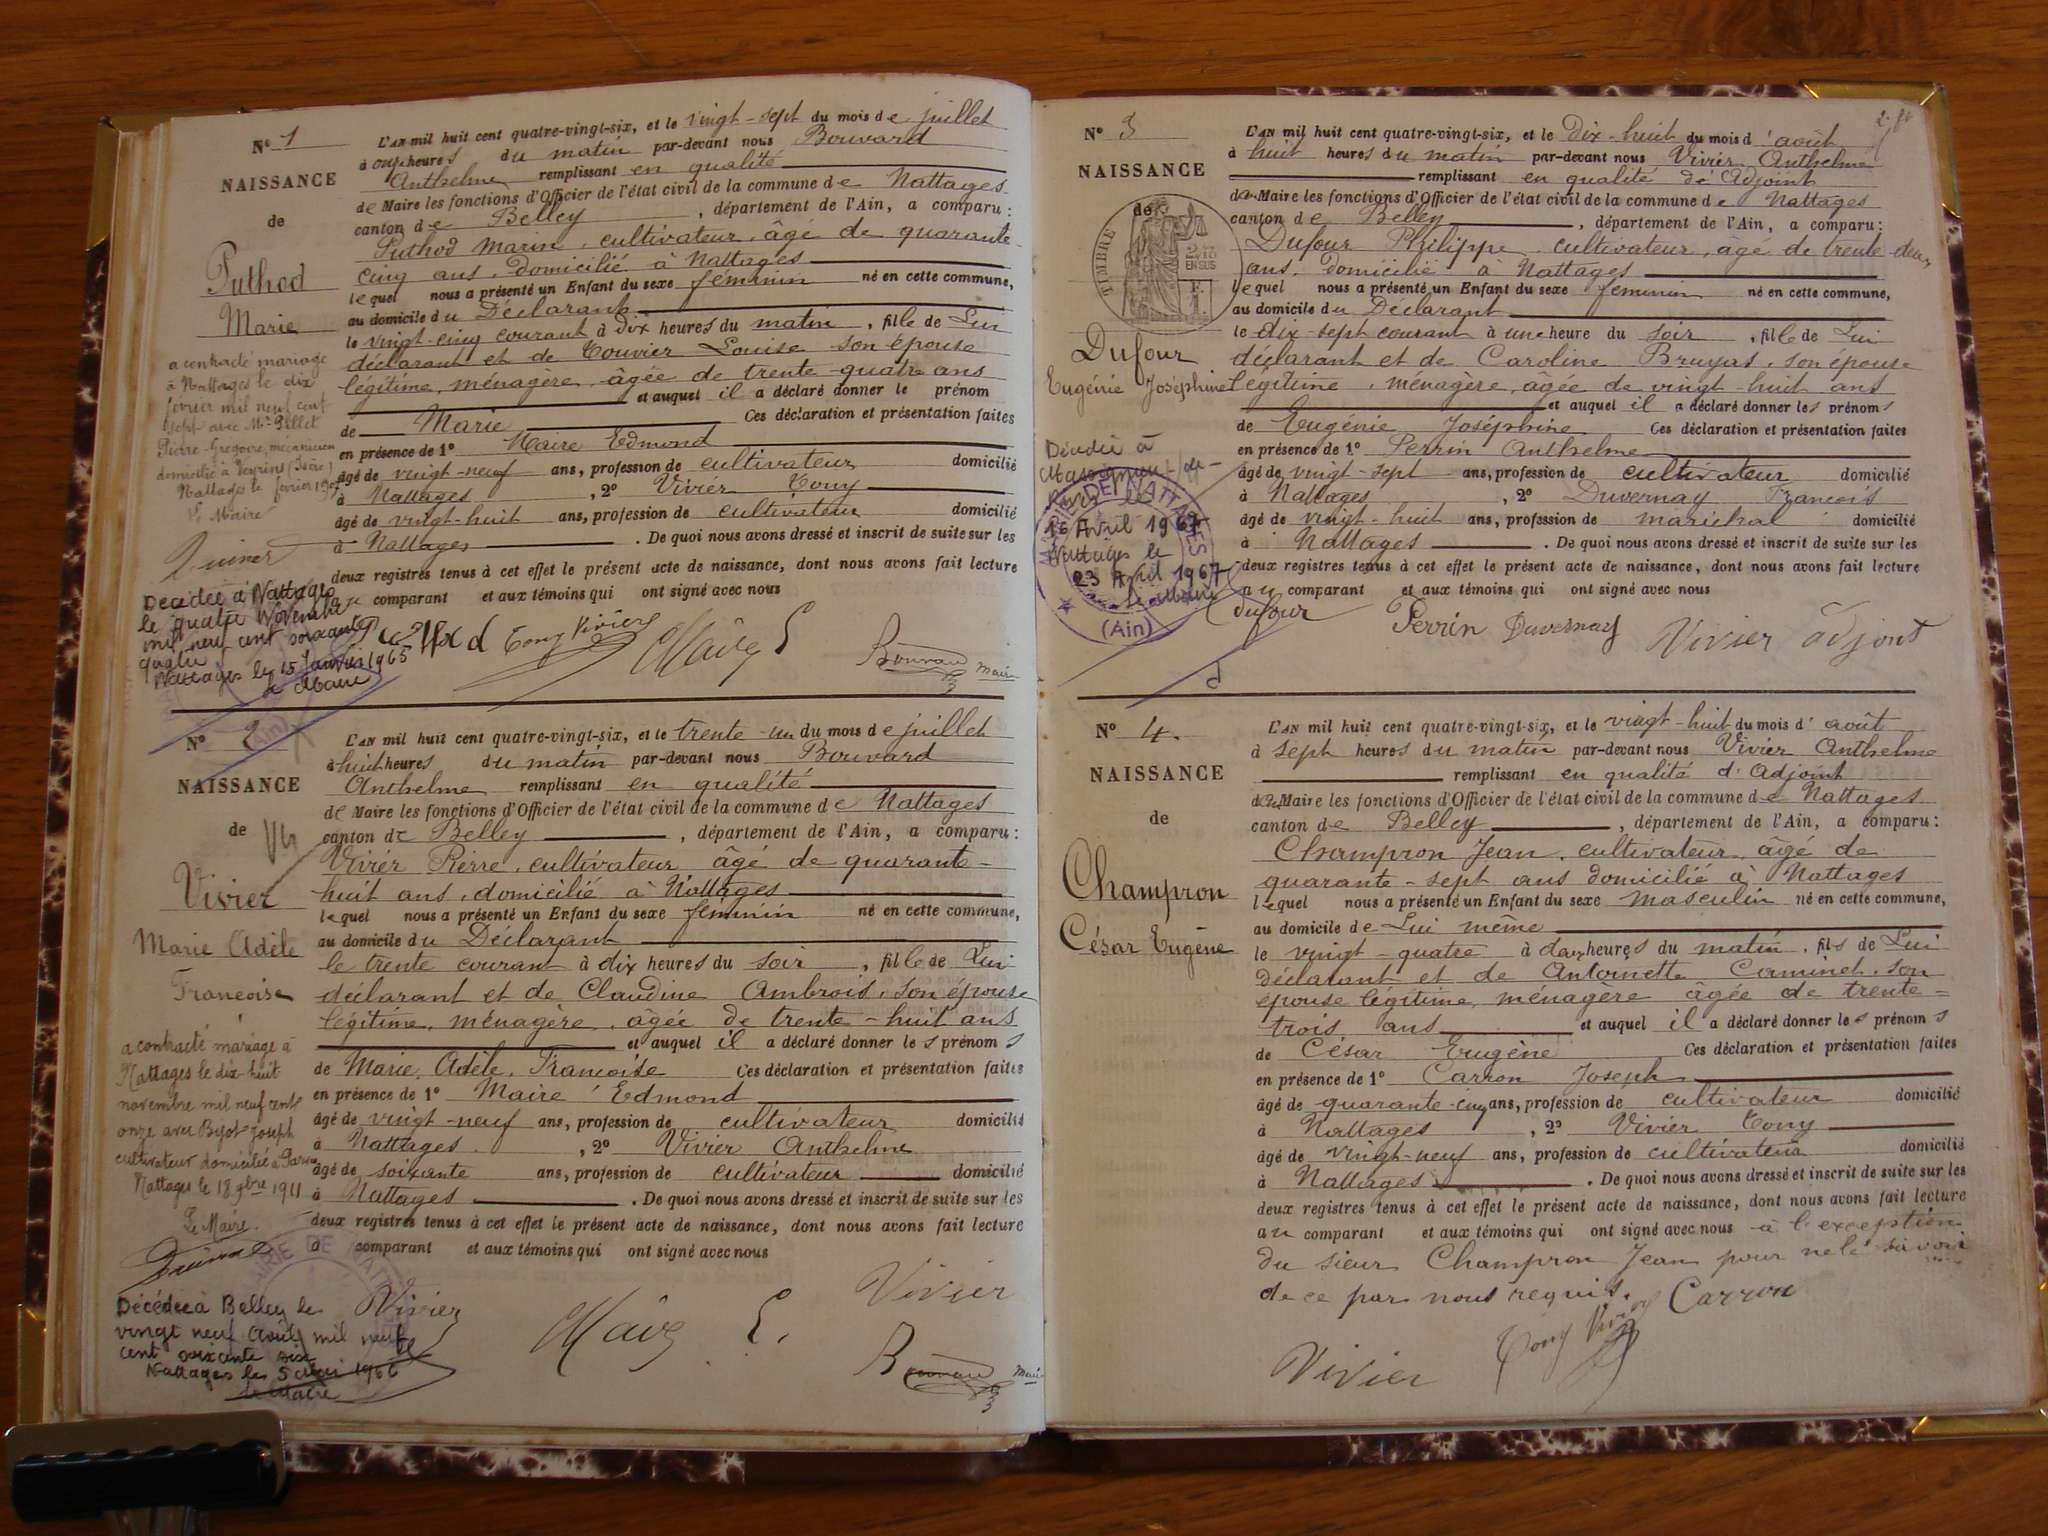 N° 1
NAISSANCE
de
Puthod
Marie
a contracté mariage
à Nattages le dix
février mil neuf cent
sept avec Mr Pillet
Pierre-Grégoire, mécanicien
domicilié à Veyrins (Isère)
Nattages le février 1907
Le Maire
Décédée à Nattages
le quatre Novembre
mil neuf cent soixante
quatre
Nattages le 15 Janvier 1965
Le Maire
L'AN mil huit cent quatre-vingt-six, et le vingt-sept du mois de juillet
à onze heures du matin par-devant nous Bouvard
Anthelme remplissant en qualité
de Maire les fonctions d'Officier de l'état civil de la commune de Nattages
canton de Belley, département de l'Ain, a comparu:
Puthod Marin, cultivateur, âgé de quarante-
cinq ans, domicilié à Nattages
lequel nous a présenté un Enfant du sexe féminin né en cette commune,
au domicile du Déclarant
le vingt-cinq courant à dix heures du matin, fille de Lui
déclarant et de Touvier Louise son épouse
légitime, ménagère, âgée de trente-quatre ans
et auquel il a déclaré donner le prénom
de Marie Ces déclaration et présentation faites
en présence de 1° Maire Edmond
âgé de vingt-neuf ans, profession de cultivateur domicilié
à Nattages, 2° Vivier Tony
âgé de vingt-huit ans, profession de cultivateur domicilié
à Nattages. De quoi nous avons dressé et inscrit de suite sur les
deux registres tenus à cet effet le présent acte de naissance, dont nous avons fait lecture
au comparant et aux témoins qui ont signé avec nous
Puthod Tony Vivier Maire E Bouvard Maire
N° 2
NAISSANCE
de
Vivier
Marie Adèle
Françoise
a contracté mariage à
Nattages le dix-huit
novembre mil neuf cent
onze avec Byot Joseph
cultivateur domicilié à
Nattages le 18 9bre 1911
Le Maire
Décédée à Belley le
vingt neuf Août mil neuf
cent soixante six
Nattages le 5 1966
Le Maire
L'AN mil huit cent quatre-vingt-six, et le trente-un du mois de juillet
à huit heures du matin par-devant nous Bouvard
Anthelme remplissant en qualité
de Maire les fonctions d'Officier de l'état civil de la commune de Nattages
canton de Belley, département de l'Ain, a comparu:
Vivier Pierre, cultivateur âgé de quarante-
huit ans, domicilié à Nattages
lequel nous a présenté un Enfant du sexe féminin né en cette commune,
au domicile du Déclarant
le trente courant à dix heures du soir, fille de Lui
déclarant et de Claudine Ambrois, son épouse
légitime, ménagère, âgée de trente-huit ans
et auquel il a déclaré donner les prénoms
de Marie, Adèle, Françoise Ces déclaration et présentation faites
en présence de 1° Maire Edmond
âgé de vingt-neuf ans, profession de cultivateur domicilié
à Nattages, 2° Vivier Anthelme
âgé de soixante ans, profession de cultivateur domicilié
à Nattages. De quoi nous avons dressé et inscrit de suite sur les
deux registres tenus à cet effet le présent acte de naissance, dont nous avons fait lecture
a comparant et aux témoins qui ont signé avec nous
Vivier Maire E. Vivier
Bouvard Maire
N° 3
NAISSANCE
de
TIMBRE
2/10
EN SUS
Dufour
Eugénie Joséphine
Décédée à
16 Avril 1967
Nattages le
23 Avril 1967
MAIRIE DE NATTAGES
(Ain)
L'AN mil huit cent quatre-vingt-six, et le Dix-huit du mois d'août
à huit heures du matin par-devant nous Vivier Anthelme
remplissant en qualité de Adjoint
de Maire les fonctions d'Officier de l'état civil de la commune de Nattages
canton de Belley, département de l'Ain, a comparu:
Dufour Philippe, cultivateur, âgé de trente-deux
ans, domicilié à Nattages
lequel nous a présenté un Enfant du sexe féminin né en cette commune,
au domicile du Déclarant
le dix-sept courant à une heure du soir, fille de Lui
déclarant et de Caroline Bruyas, son épouse
légitime, ménagère, âgée de vingt-huit ans
et auquel il a déclaré donner les prénoms
de Eugénie Joséphine Ces déclaration et présentation faites
en présence de 1° Perrin Anthelme
âgé de vingt-sept ans, profession de cultivateur domicilié
à Nattages, 2° Duvernay François
âgé de vingt-huit ans, profession de maréchal domicilié
à Nattages. De quoi nous avons dressé et inscrit de suite sur les
deux registres tenus à cet effet le présent acte de naissance, dont nous avons fait lecture
au comparant et aux témoins qui ont signé avec nous
Dufour Perrin Duvernay Vivier adjont
N° 4.
NAISSANCE
de
Champron
César Eugène
L'AN mil huit cent quatre-vingt-six, et le vingt-huit du mois d'août
à sept heures du matin par-devant nous Vivier Anthelme
remplissant en qualité d'Adjoint
de Maire les fonctions d'Officier de l'état civil de la commune de Nattages
canton de Belley, département de l'Ain, a comparu:
Champron Jean, cultivateur, âgé de
quarante-sept ans domicilié à Nattages
lequel nous a présenté un Enfant du sexe masculin né en cette commune,
au domicile de Lui même
le vingt-quatre à deux heures du matin, fils de Lui
Déclarant et de Antoinette Caminet, son
épouse légitime, ménagère âgée de trente-
trois ans et auquel il a déclaré donner les prénoms
de César Eugène Ces déclaration et présentation faites
en présence de 1° Carron Joseph
âgé de quarante-cinq ans, profession de cultivateur domicilié
à Nattages, 2° Vivier Tony
âgé de vingt-neuf ans, profession de cultivateur domicilié
à Nattages. De quoi nous avons dressé et inscrit de suite sur les
deux registres tenus à cet effet le présent acte de naissance, dont nous avons fait lecture
au comparant et aux témoins qui ont signé avec nous à l'exception
du sieur Champron Jean pour ne le savoir
de ce par nous requis.
Vivier Tony Vivier Carron